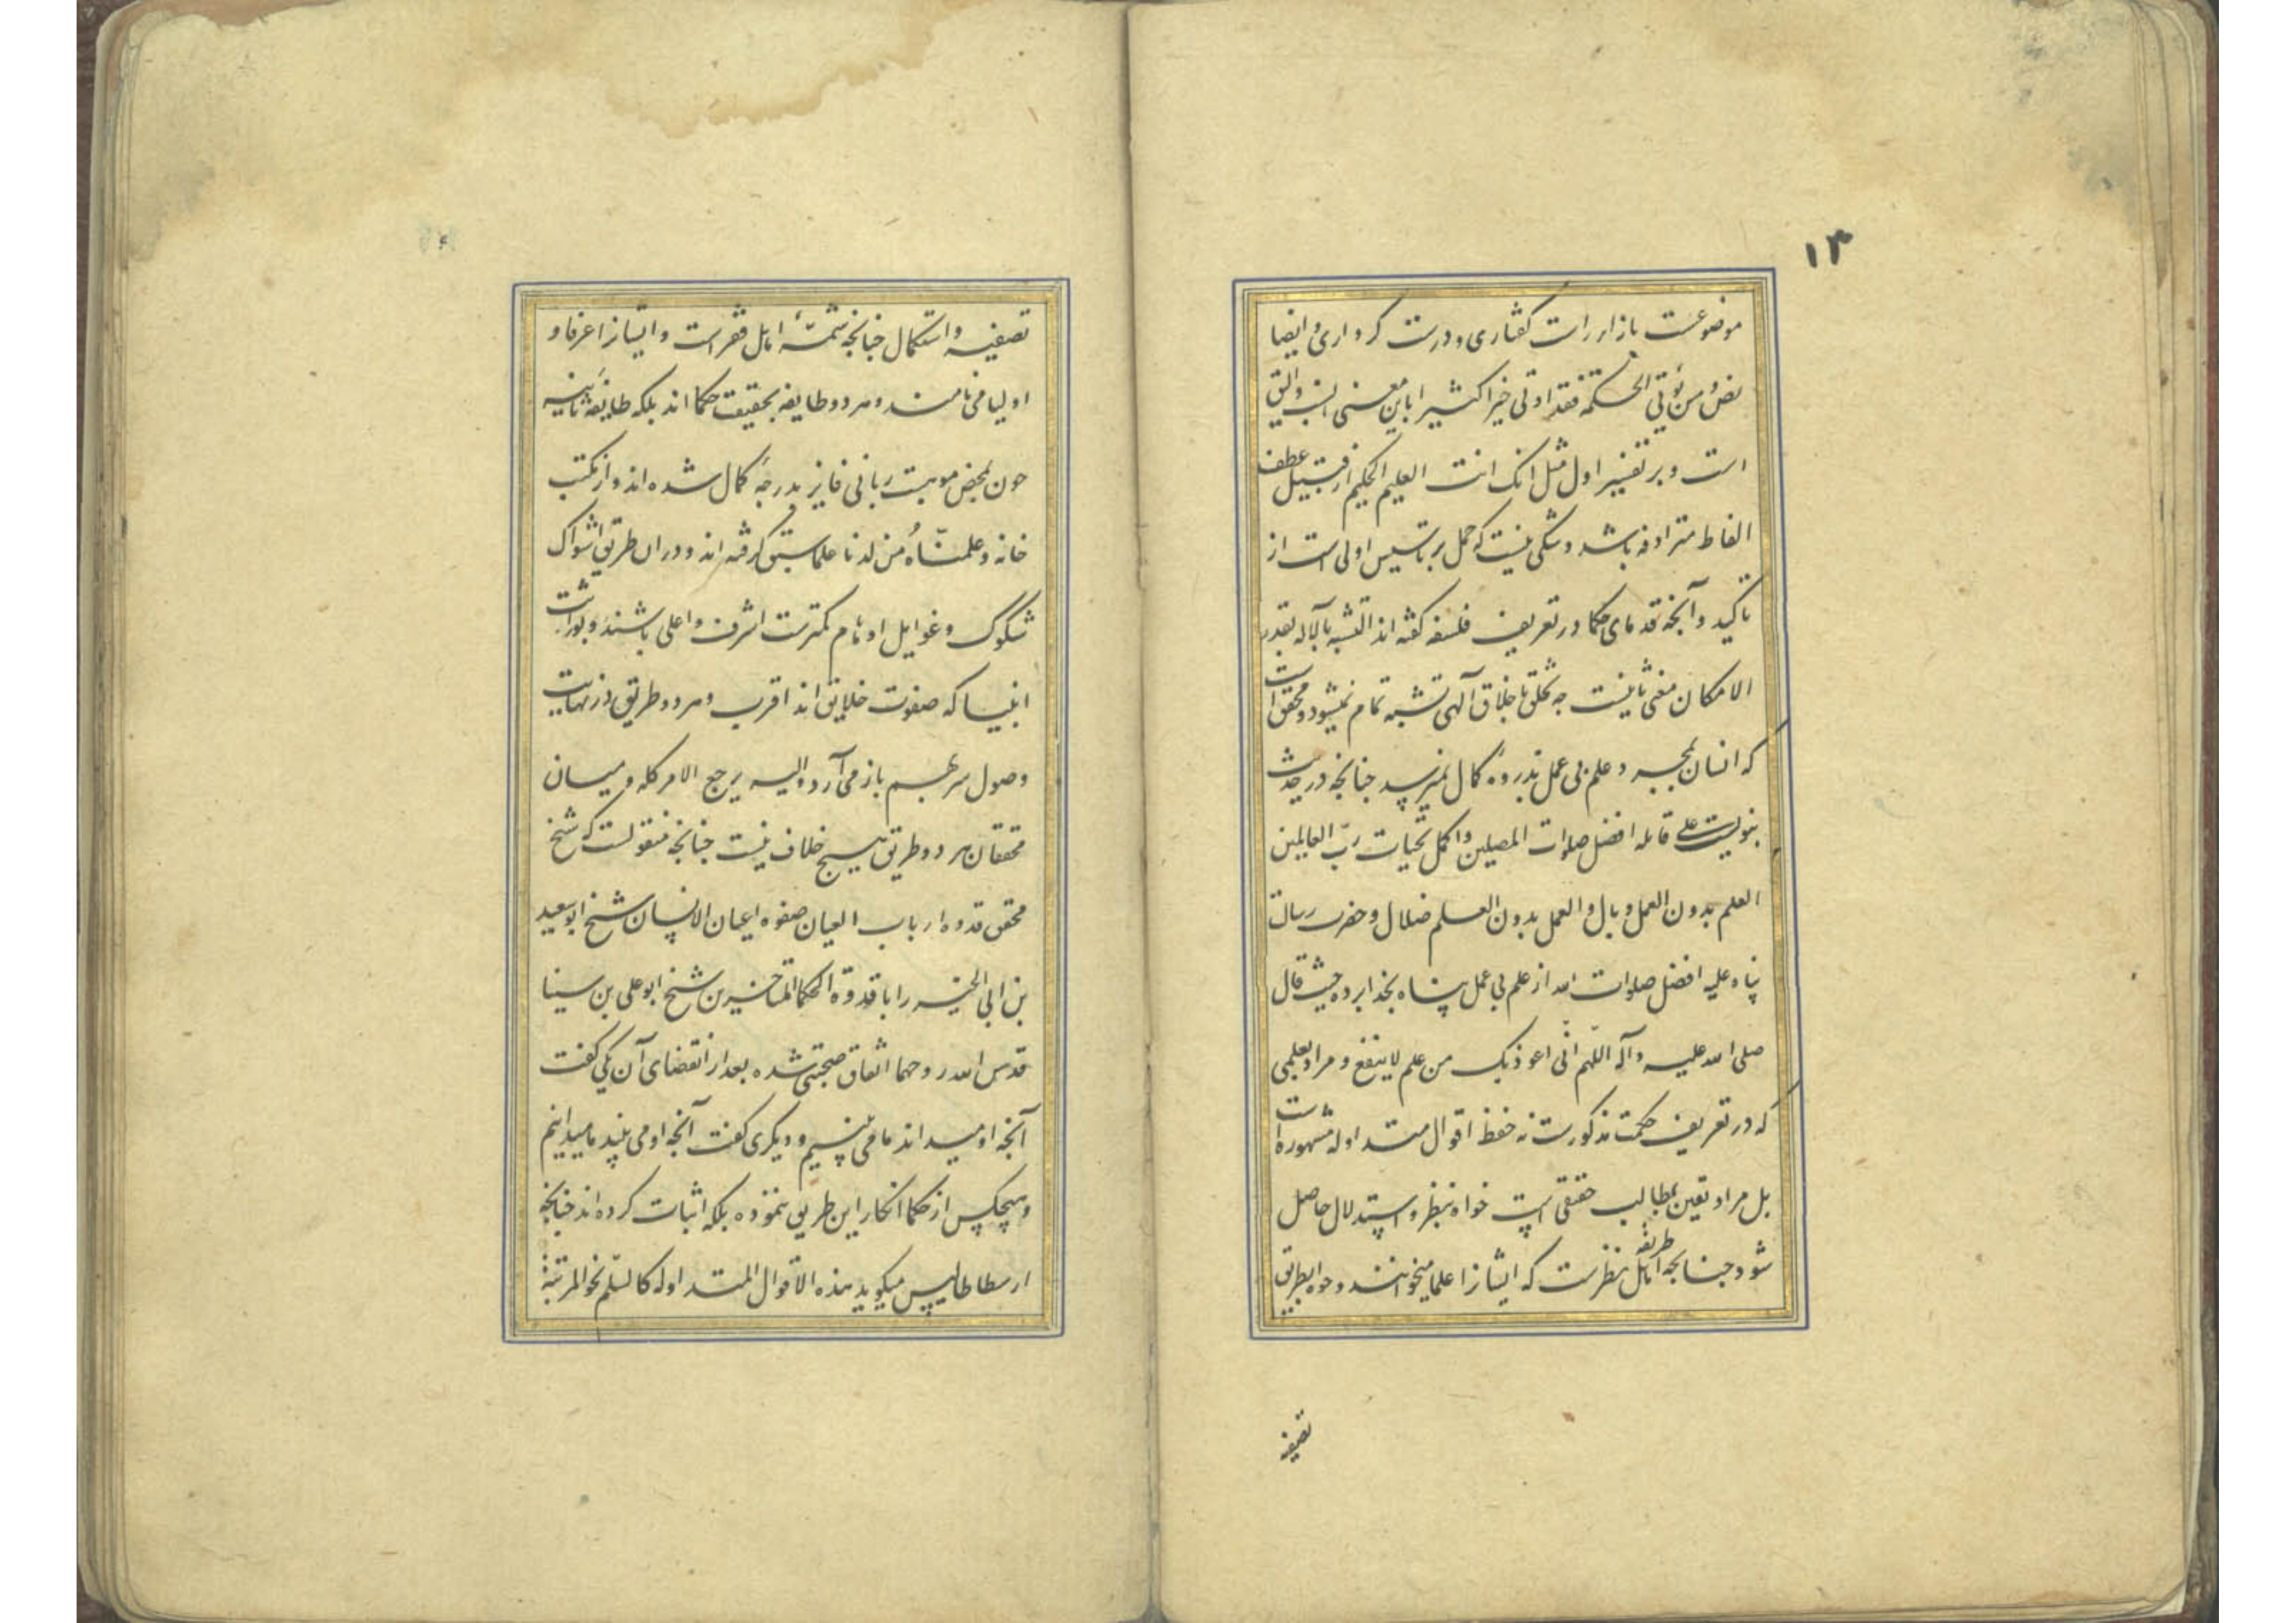 ۱۳
موضوعست بازاء راست کفتاری و درست کرداری و ایضا
نص و من یؤتی الحکمه فقد اوتی خیرا کثیرا باین معنی انسب و الیق
است و بر تفسیر اول مثل انک انت العلیم الحکیم از قبیل عطف
الفاظ مترادفه باشد و شکی نیست که حمل بر تاسیس اولی است از
تاکید و آنجه قدمای حکما در تعریف فلسفه کفته اند التشبه بالاله بقدر
الامکان مغنی نیست جه تخلق باخلاق آلهی تشبه تمام نمیشود و محقق است
که انسان بمجرد علم بی عمل بذروه کمال نمیرسد جنانجه در حدیث
نبویست علی قایله افضل صلوات المصلین و اکمل تحیات رب العالمین
العلم بدون العمل وبال و العمل بدون العلم ضلال و حضرت رسالت
پناه علیه افضل صلوات الله از علم بی عمل پناه بخدا برده حیث قال
صلی الله علیه و آله اللهم انی اعوذ بک من علم لا ینفع و مراد بعلمی
که در تعریف حکمت مذکورست نه حفظ اقوال متداوله مشهوره است
بل مراد یقین بمطالب حقیقی است خواه بنظر و استدلال حاصل
شود جنانجه طریقه اهل نظرست که ایشانرا علما میخوانند و خواه بطریق
تصفیه
تصفیه و استکمال جنانجه شمه اهل فقر است و ایشانرا عرفا و
اولیا می نامند و هر دو طایفه بحقیقت حکما اند بلکه طایفه ثانیه
جون بمحض موهبت ربانی فایز بدرجه کمال شده اند و از مکتب
خانه و علمناه من لدنا علما سبق کرفته اند و در ان طریق اشواک
شکوک و غوایل اوهام کمترست اشرف و اعلی باشند و بوراثت
انبیا که صفوت خلایق اند اقرب و هر دو طریق در نهایت
وصول سر بهم باز می آرد و الیه یرجع الامر کله و میان
محققان هر دو طریق هیچ خلاف نیست جنانجه منقولست که شیخ
محقق قدوه ارباب العیان صفوه اعیان الانسان شیخ ابو سعید
بن ابی الخیر را با قدوة الحکما المتاخرین شیخ ابو علی بن سینا
قدس الله روحهما اتفاق صحبتی شده بعد از انقضای آن یکی کفت
آنجه او میداند ما می بینیم و دیگری کفت آنجه او می بیند ما میدانیم
و هیچکس از حکما انکار این طریق ننموده بلکه اثبات کرده اند جنانجه
ارسطاطالیس میکوید هذه الاقوال المتداوله کالسلم نحو المرتبة